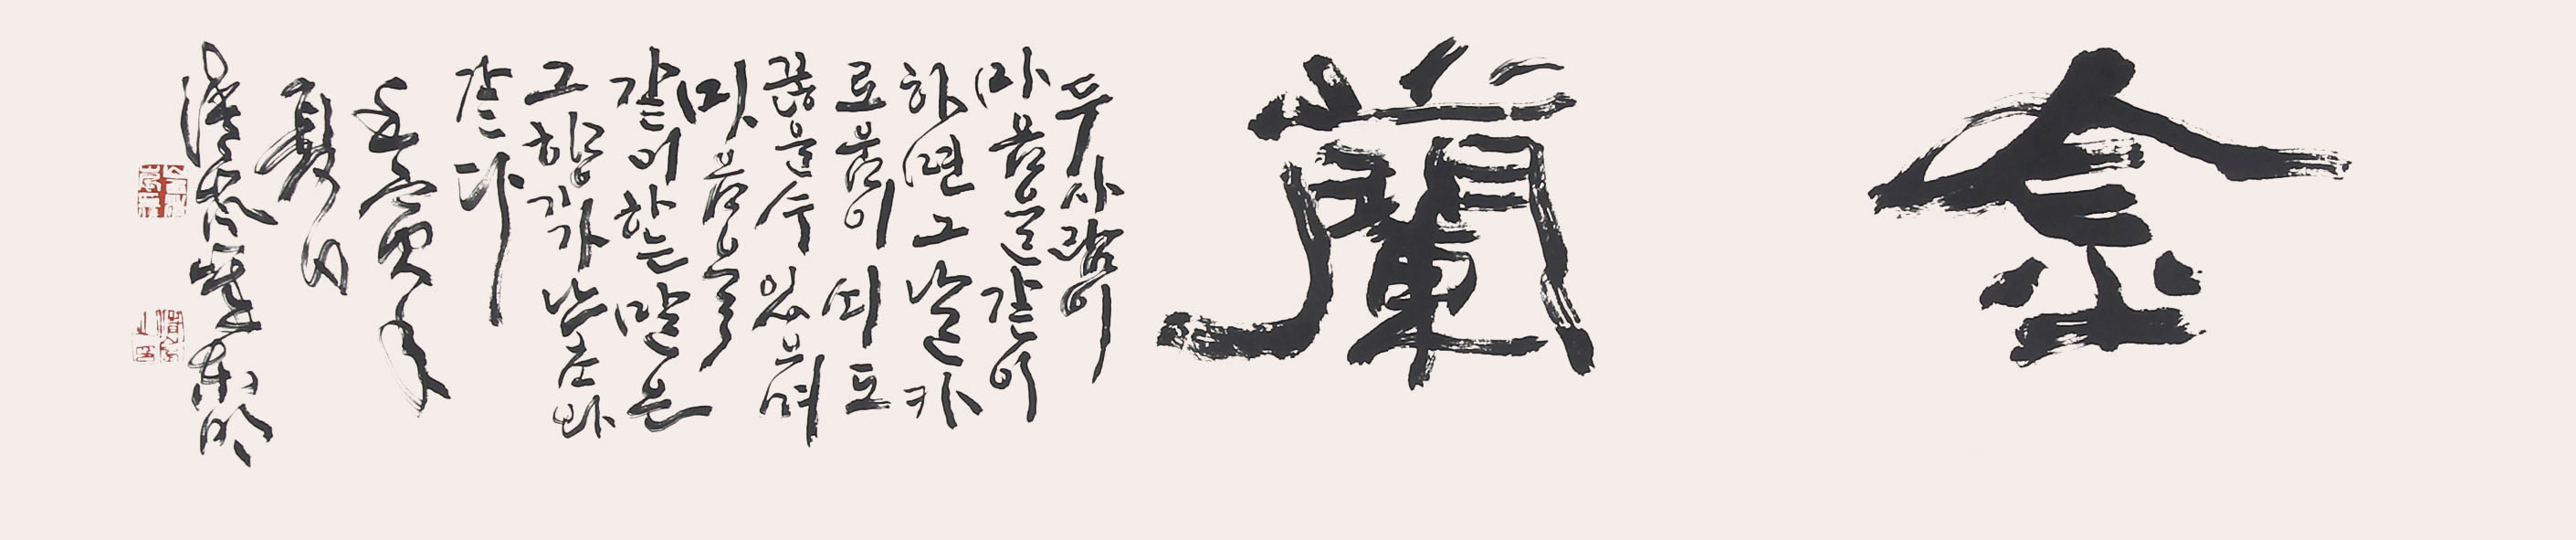 金蘭
두 사람이
마음을 같이
하면 그 날카
로움이 쇠도
끊을 수 있으며
마음을
같이하는 말은
그 향기가 난초와
같다
壬寅年
夏日